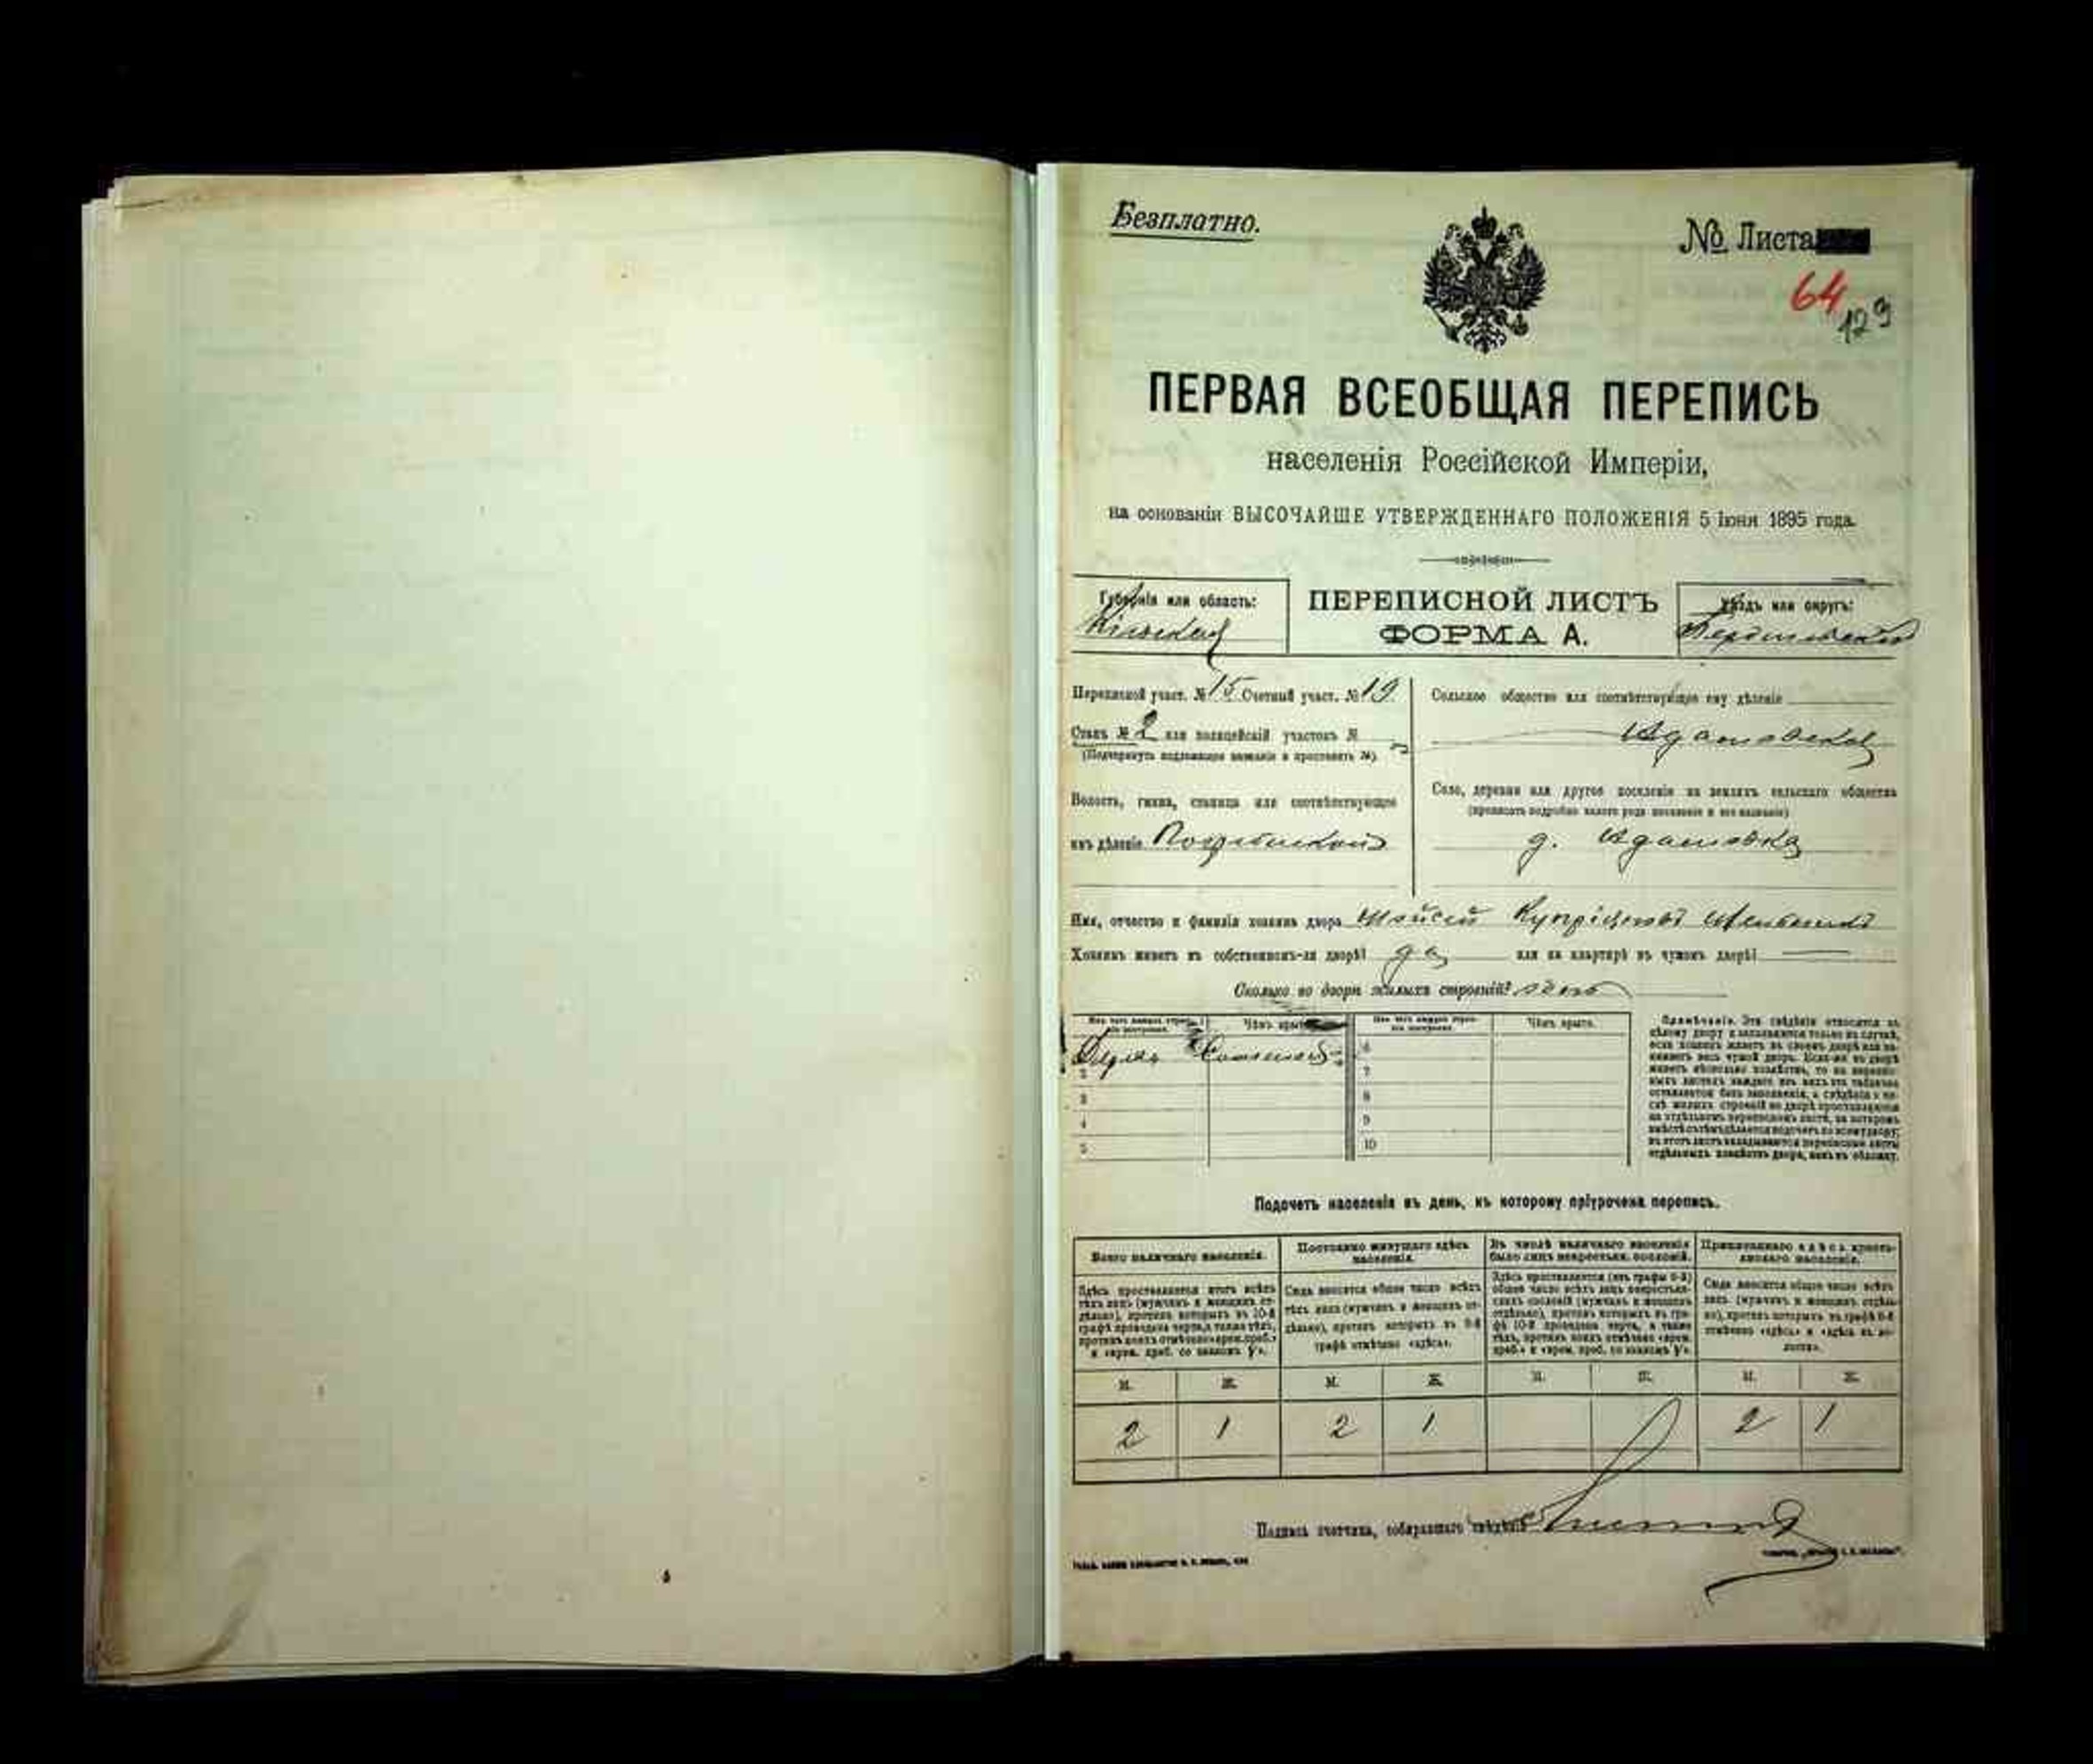 Безплатно.
№ Листа
64
129
ПЕРВАЯ ВСЕОБЩАЯ ПЕРЕПИСЬ
населенія Россійской Имперіи,
на основаніи ВЫСОЧАЙШЕ УТВЕРЖДЕННАГО ПОЛОЖЕНІЯ 5 Іюня 1895 года.
Губернія или область:
Кіевская
ПЕРЕПИСНОЙ ЛИСТЪ
ФОРМА А.
Уѣздъ или округъ:
Бердичевскій
Переписной участ. № 15 Счетный участ. № 19
Станъ № 2 или полицейскій участокъ №
(Подчеркнуть подлежащее названіе и проставить №)
Волость, гмина, станица или соотвѣтствующее
имъ дѣленіе
Сельское общество или соотвѣтствующее ему дѣленіе
Адамовское
Село, деревня или другое поселеніе на земляхъ сельскаго общества
(прописать подробно какого рода поселеніе и его названіе)
д. Адамовка
Имя, отчество и фамилія хозяина двора Мойсей Купріяновъ
Хозяинъ живетъ въ собственномъ-ли дворѣ? да или на квартирѣ въ чужомъ дворѣ?
Сколько во дворѣ жилыхъ строеній? одно
Изъ чего каждое строеніе построено.
Чѣмъ крыто.
Изъ чего каждое строеніе построено.
Чѣмъ крыто.
Соломой
2
3
4
5
6
7
8
9
10
Примѣчаніе. Эти свѣдѣнія относятся къ
цѣлому двору и заполняются только въ случаѣ,
если хозяинъ живетъ въ своемъ дворѣ или на-
нимаетъ весь чужой дворъ. Если-же въ дворѣ
живетъ нѣсколько хозяйствъ, то на перепис-
ныхъ листахъ каждаго изъ нихъ эта табличка
оставляется безъ заполненія, а свѣдѣнія о чи-
слѣ жилыхъ строеній во дворѣ проставляются
на отдѣльномъ переписномъ листѣ, на которомъ
вмѣстѣ съ тѣмъ дѣлается подсчетъ по всему двору;
въ этотъ листъ вкладываются переписные листы
отдѣльныхъ хозяйствъ двора, какъ въ обложку.
Подсчетъ населенія въ день, къ которому пріурочена перепись.
Всего наличнаго населенія.
Постоянно живущаго здѣсь населенія.
Въ числѣ наличнаго населенія было лицъ некрестьян. сословій.
Приписаннаго здѣсь крестьянскаго населенія.
Здѣсь проставляется итогъ всѣхъ
тѣхъ лицъ (мужчинъ и женщинъ от-
дѣльно), противъ которыхъ въ 10-й
графѣ проведена черта, а также тѣхъ,
противъ коихъ отмѣчено «врем. преб.»
и «врем. преб. со знакомъ
Сюда вносится общее число всѣхъ
тѣхъ лицъ (мужчинъ и женщинъ от-
дѣльно), противъ которыхъ въ 9-й
графѣ отмѣчено «здѣсь».
Здѣсь проставляется (изъ графы 6-й)
общее число всѣхъ лицъ некрестьян-
скихъ сословій (мужчинъ и женщинъ
отдѣльно), противъ которыхъ въ гра-
фѣ 10-й проведена черта, а также
тѣхъ, противъ коихъ отмѣчено «врем.
преб.» и «врем. преб. со знакомъ
Сюда вносится общее число всѣхъ
лицъ (мужчинъ и женщинъ отдѣль-
но), противъ которыхъ въ графѣ 8-й
отмѣчено «здѣсь» и «здѣсь въ во-
лости».
М. Ж. М. Ж. М. Ж. М. Ж.
2 1 2 1 2 1
Подпись счетчика, собиравшаго свѣдѣнія